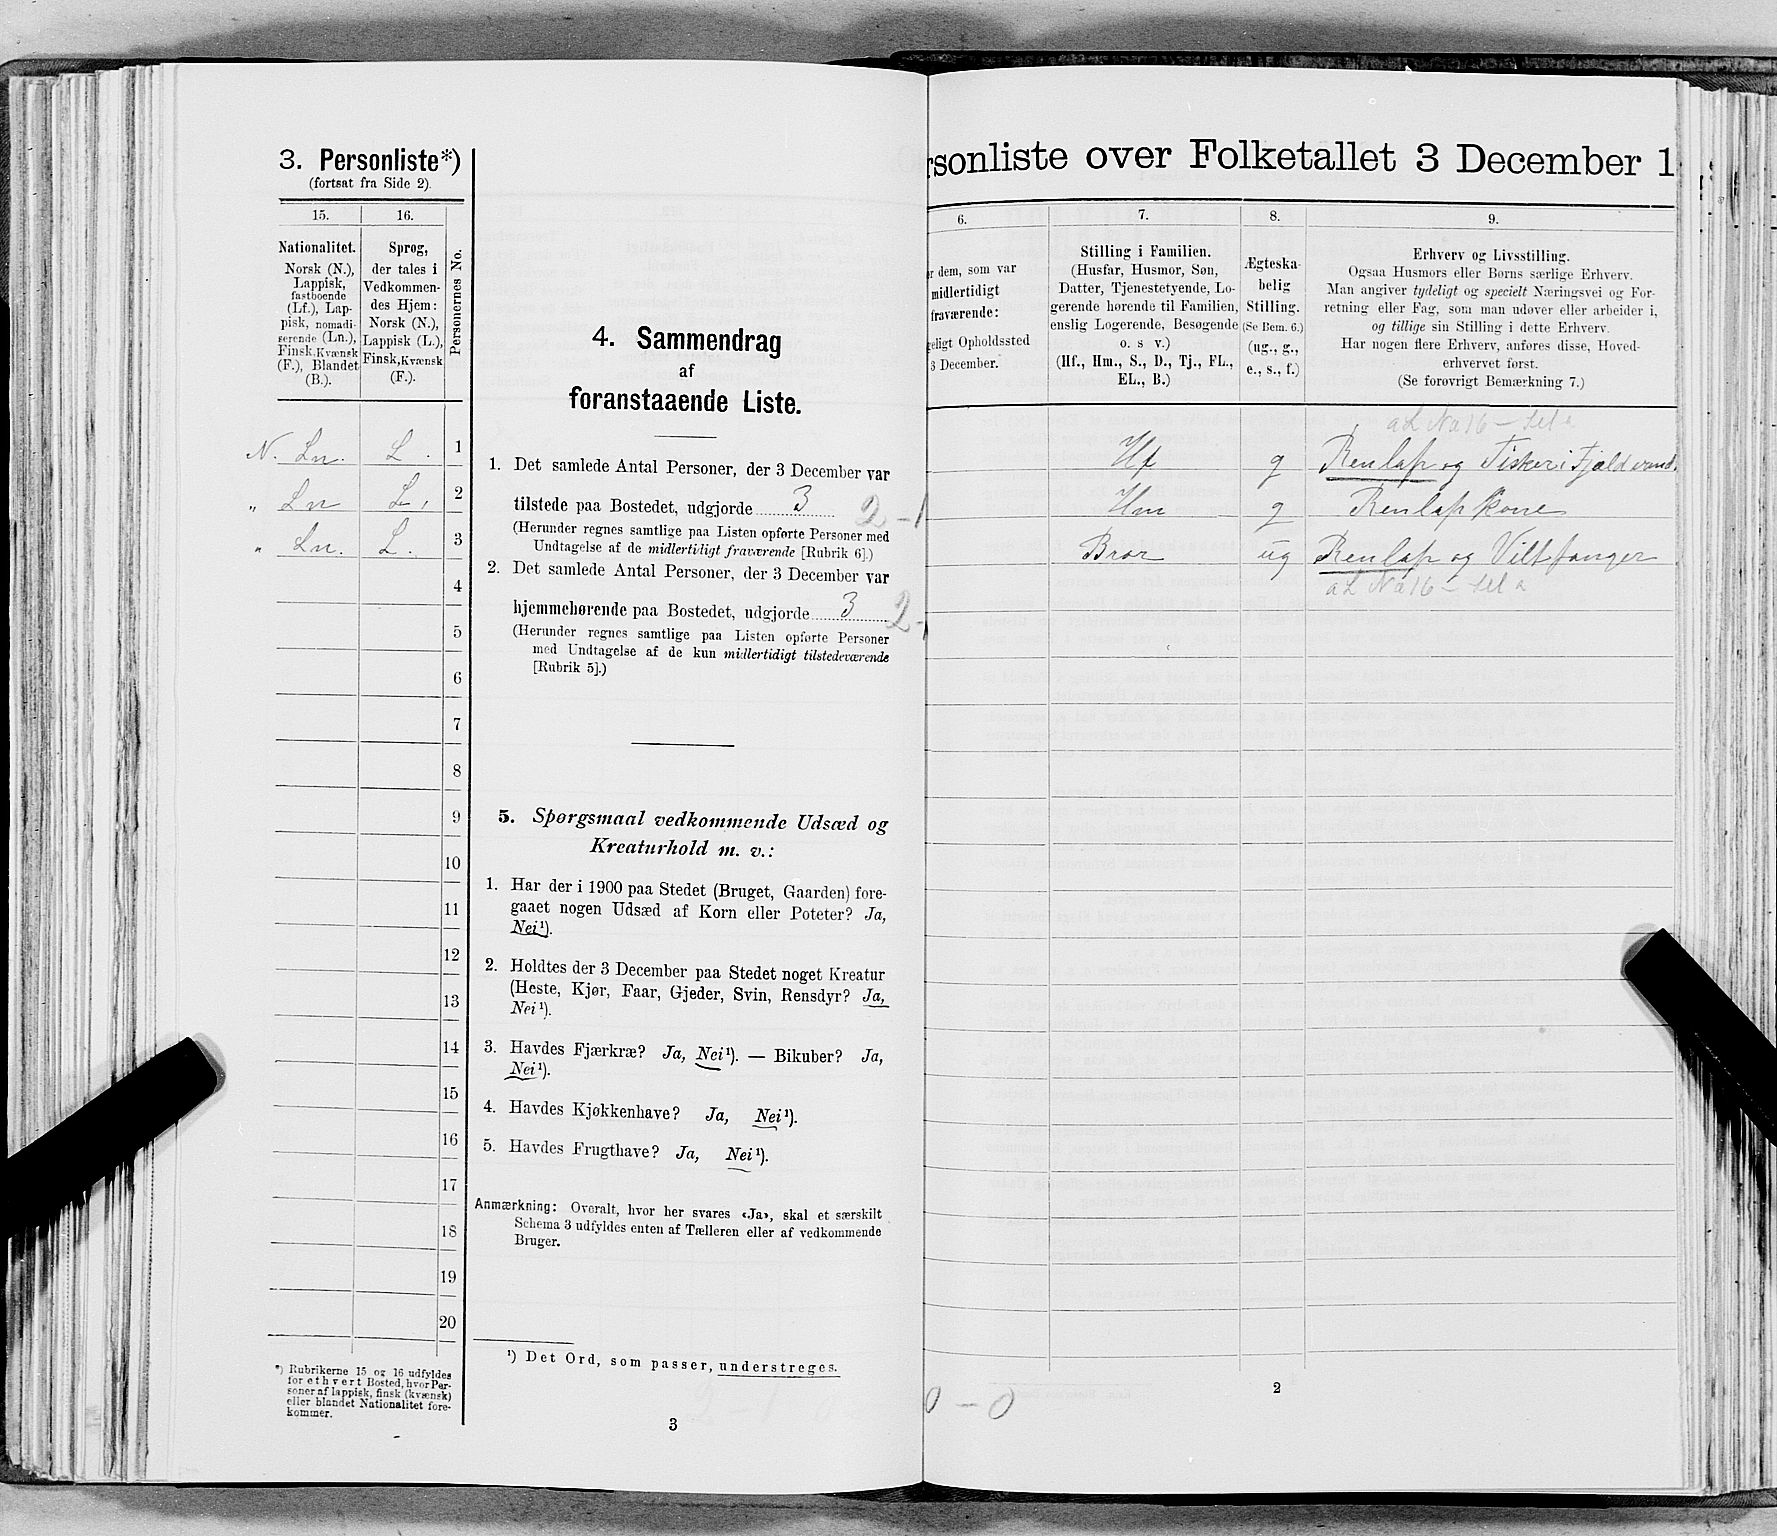 3. Personliste*)
(fortsat fra Side 2).
15.
16.
Personernes No.
Nationalitet.
Norsk (N.),
Lappisk,
fastboende
(Lf.), Lap-
pisk, nomadi-
serende (Ln.),
Finsk, Kvænsk
(F.), Blandet
(B.).
Sprog,
der tales i
Vedkommen-
des Hjem:
Norsk (N.),
Lappisk (L.),
Finsk, Kvænsk
(F.).
N. Ln. L. 1
" Ln L, 2
" Ln. L. 3
4
5
6
7
8
9
10
11
12
13
14
15
16
17
18
19
20
*) Rubrikerne 15 og 16 udfyldes
for ethvert Bosted, hvor Per-
soner af lappisk, finsk (kvænsk)
eller blandet Nationalitet fore-
kommer.
4. Sammendrag
af
foranstaaende Liste.
1. Det samlede Antal Personer, der 3 December var
tilstede paa Bostedet, udgjorde 3 2-1
(Herunder regnes samtlige paa Listen opførte Personer med
Undtagelse af de midlertidigt fraværende [Rubrik 6].)
2. Det samlede Antal Personer, der 3 December var
hjemmehørende paa Bostedet, udgjorde 3 2-1
(Herunder regnes samtlige paa Listen opførte Personer
med Undtagelse af de kun midlertidigt tilstedeværende
[Rubrik 5].)
5. Spørgsmaal vedkommende Udsæd og
Kreaturhold m. v.:
1. Har der i 1900 paa Stedet (Bruget, Gaarden) fore-
gaaet nogen Udsæd af Korn eller Poteter? Ja,
Nei¹).
2. Holdtes der 3 December paa Stedet noget Kreatur
(Heste, Kjør, Faar, Gjeder, Svin, Rensdyr? Ja,
Nei¹).
3. Havdes Fjærkræ? Ja, Nei¹). — Bikuber? Ja,
Nei¹).
4. Havdes Kjøkkenhave? Ja, Nei¹).
5. Havdes Frugthave? Ja, Nei¹).
Anmærkning: Overalt, hvor her svares «Ja», skal et særskilt
Schema 3 udfyldes enten af Tælleren eller af vedkommende
Bruger.
¹) Det Ord, som passer, understreges.
3
rsonliste over Folketallet 3 December 1
6.
7.
8.
9.
r dem, som var
midlertidigt
fraværende:
geligt Opholdssted
3 December.
Stilling i Familien.
(Husfar, Husmor, Søn,
Datter, Tjenestetyende, Lo-
gerende hørende til Familien,
enslig Logerende, Besøgende
o. s v.)
(Hf., Hm., S., D., Tj., FL.,
EL., B.)
Ægteska-
belig
Stilling.
(Se Bem. 6.)
(ug., g.,
e., s., f.)
Erhverv og Livsstilling.
Ogsaa Husmors eller Børns særlige Erhverv.
Man angiver tydeligt og specielt Næringsvei og For-
retning eller Fag, som man udøver eller arbeider i,
og tillige sin Stilling i dette Erhverv.
Har nogen flere Erhverv, anføres disse, Hoved-
erhvervet først.
(Se forøvrigt Bemærkning 7.)
Hf g Renlap og Fisker i Fjeldvand.
Hm g Renlap kone
Bror ug Renlap og Viltfanger
0 - 0
2